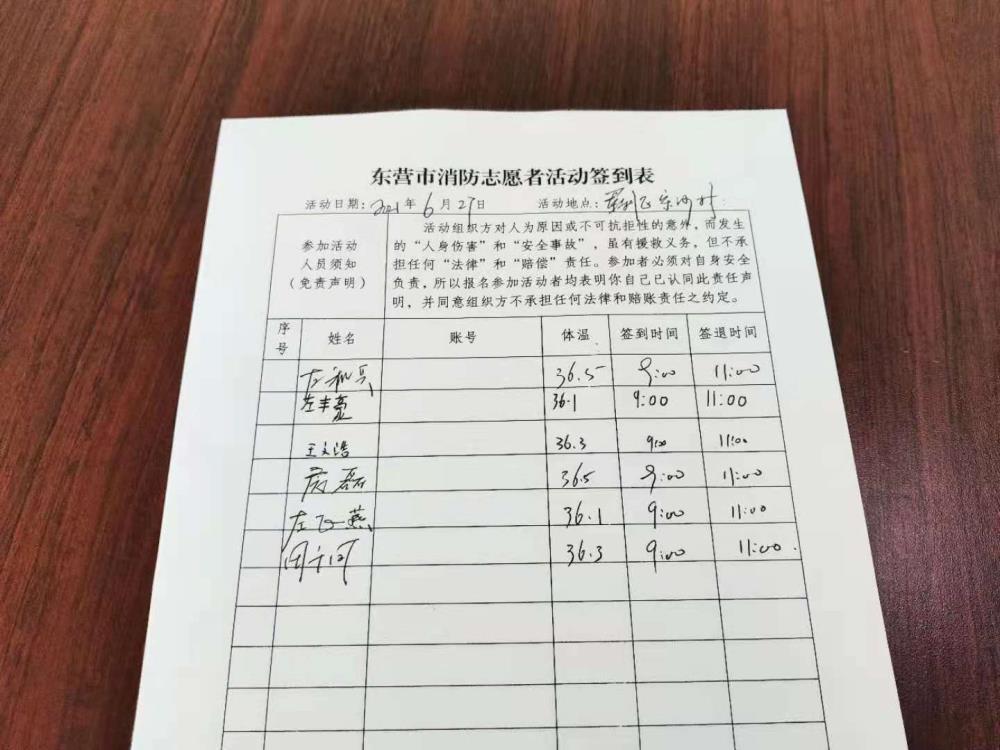 东营市消防志愿者活动签到表
活动日期：2021年6月27日 活动地点：垦利区宋河村
参加活动人员须知（免责声明）
活动组织方对人为原因或不可抗拒性的意外，而发生
的“人身伤害”和“安全事故”，虽有援救义务，但不承
担任何“法律”和“赔偿”责任。参加者必须对自身安全
负责，所以报名参加活动者均表明你自己已认同此责任声
明，并同意组织方不承担任何法律和赔账责任之约定。
序号 姓名 账号 体温 签到时间 签退时间
36.5 9:00 11:00
左丰亮 36.1 9:00 11:00
王文浩 36.3 9:00 11:00
磊 36.5 9:00 11:00
左飞燕 36.1 9:00 11:00
36.3 9:00 11:00